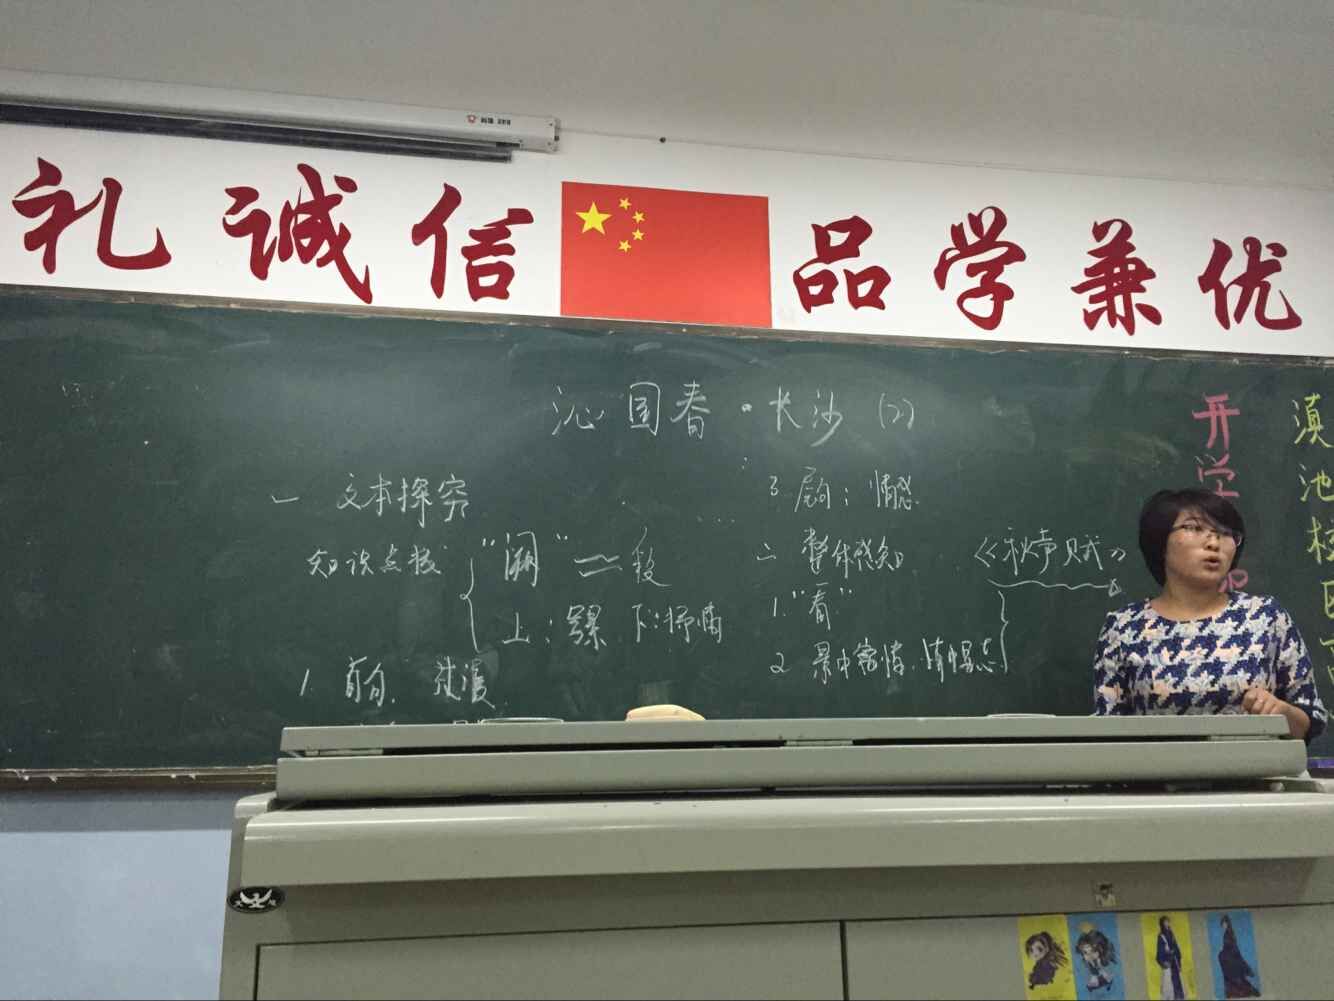 礼 诚 信 品 学 兼 优
沁园春·长沙 (2)
一 文本探究
知识点拨 "阕" ≈ 段
上：写景 下：抒情
1. 首句
3. 尾句：情感
二 整体感知
1. "看"
2. 景中寓情，情中显志
《秋声赋》
开学
滇池校区